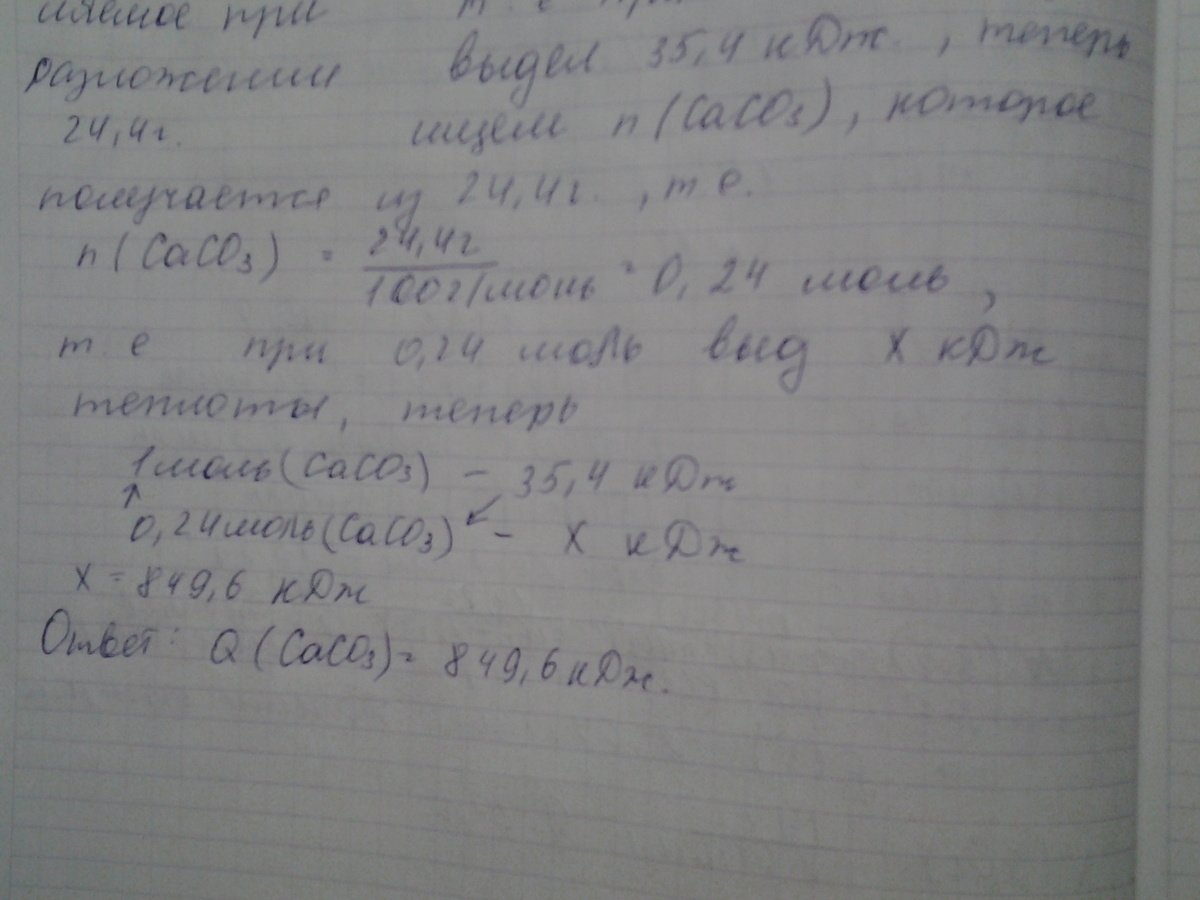 ляемое при т. е при
разложении выдел 35,4 кДж. , теперь
24,4г. ищем n (CaCO3) , которое
получается из 24,4г. , т е.
n (CaCO3) = 24,4г / 100г/моль = 0,24 моль ,
т. е при 0,24 моль выд X кДж
теплоты, теперь
1 моль (CaCO3) – 35,4 кДж
0,24 моль (CaCO3) – X кДж
X = 849,6 кДж
Ответ: Q (CaCO3) = 849,6 кДж.